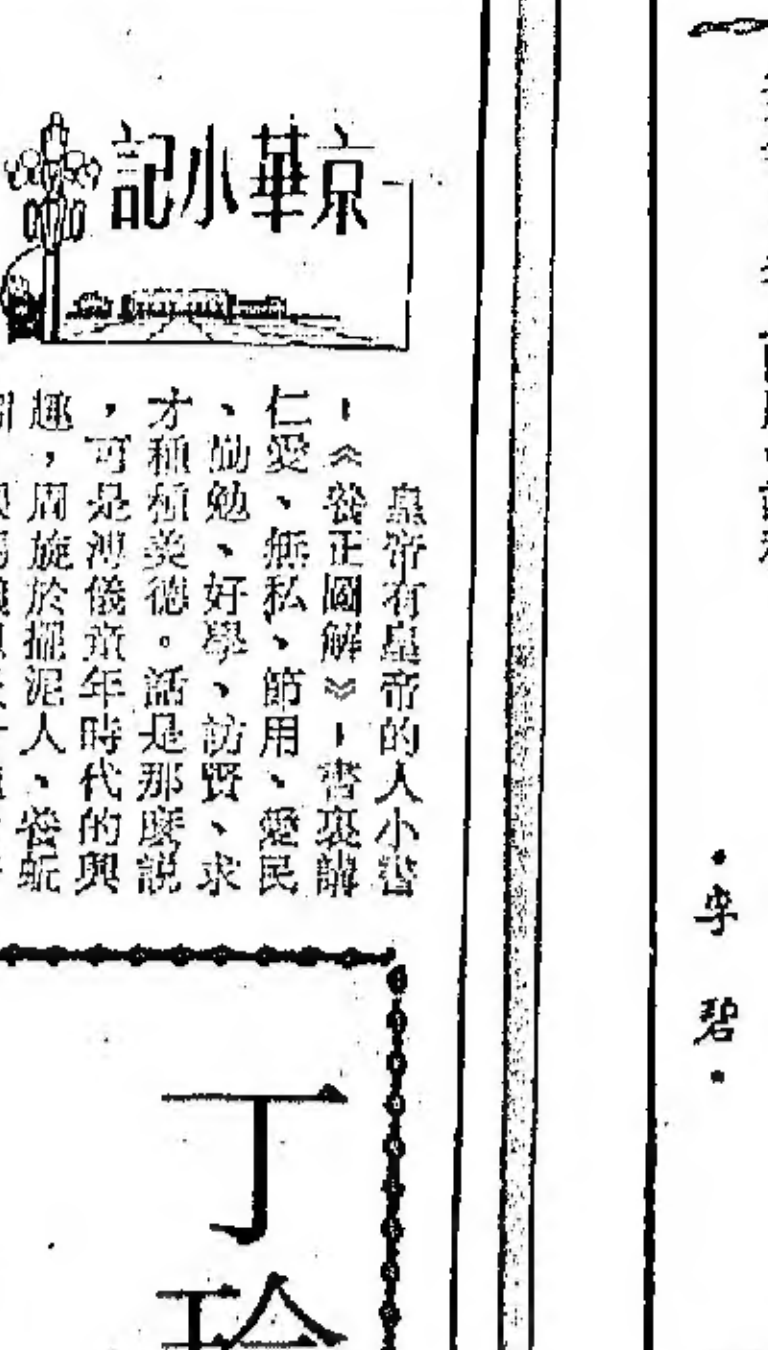 李碧
京華小記
皇帝有皇帝的人小書
——《養正圖解》——書裏講
仁愛、無私、節用、愛民
、勤勉、好學、訪賢、求
才種種美德。話是那麼説
，可是溥儀童年時代的興
趣，周旋於擺泥人、養蚯
丁
玲